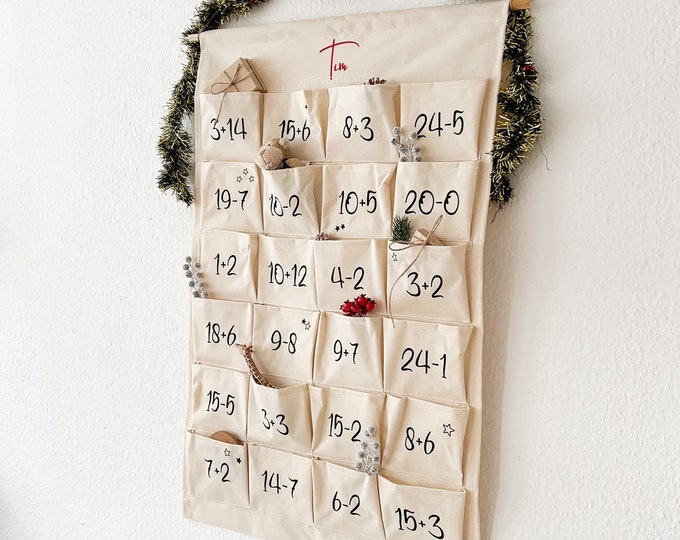 Tim
ADVENTSKALENDER
3+14 15+6 8+3 24-5
19-7 10-2 10+5 20-0
1+2 10+12 4-2 3+2
18+6 9-8 9+7 24-1
15-5 3+3 15-2 8+6
7+2 14-7 6-2 15+3